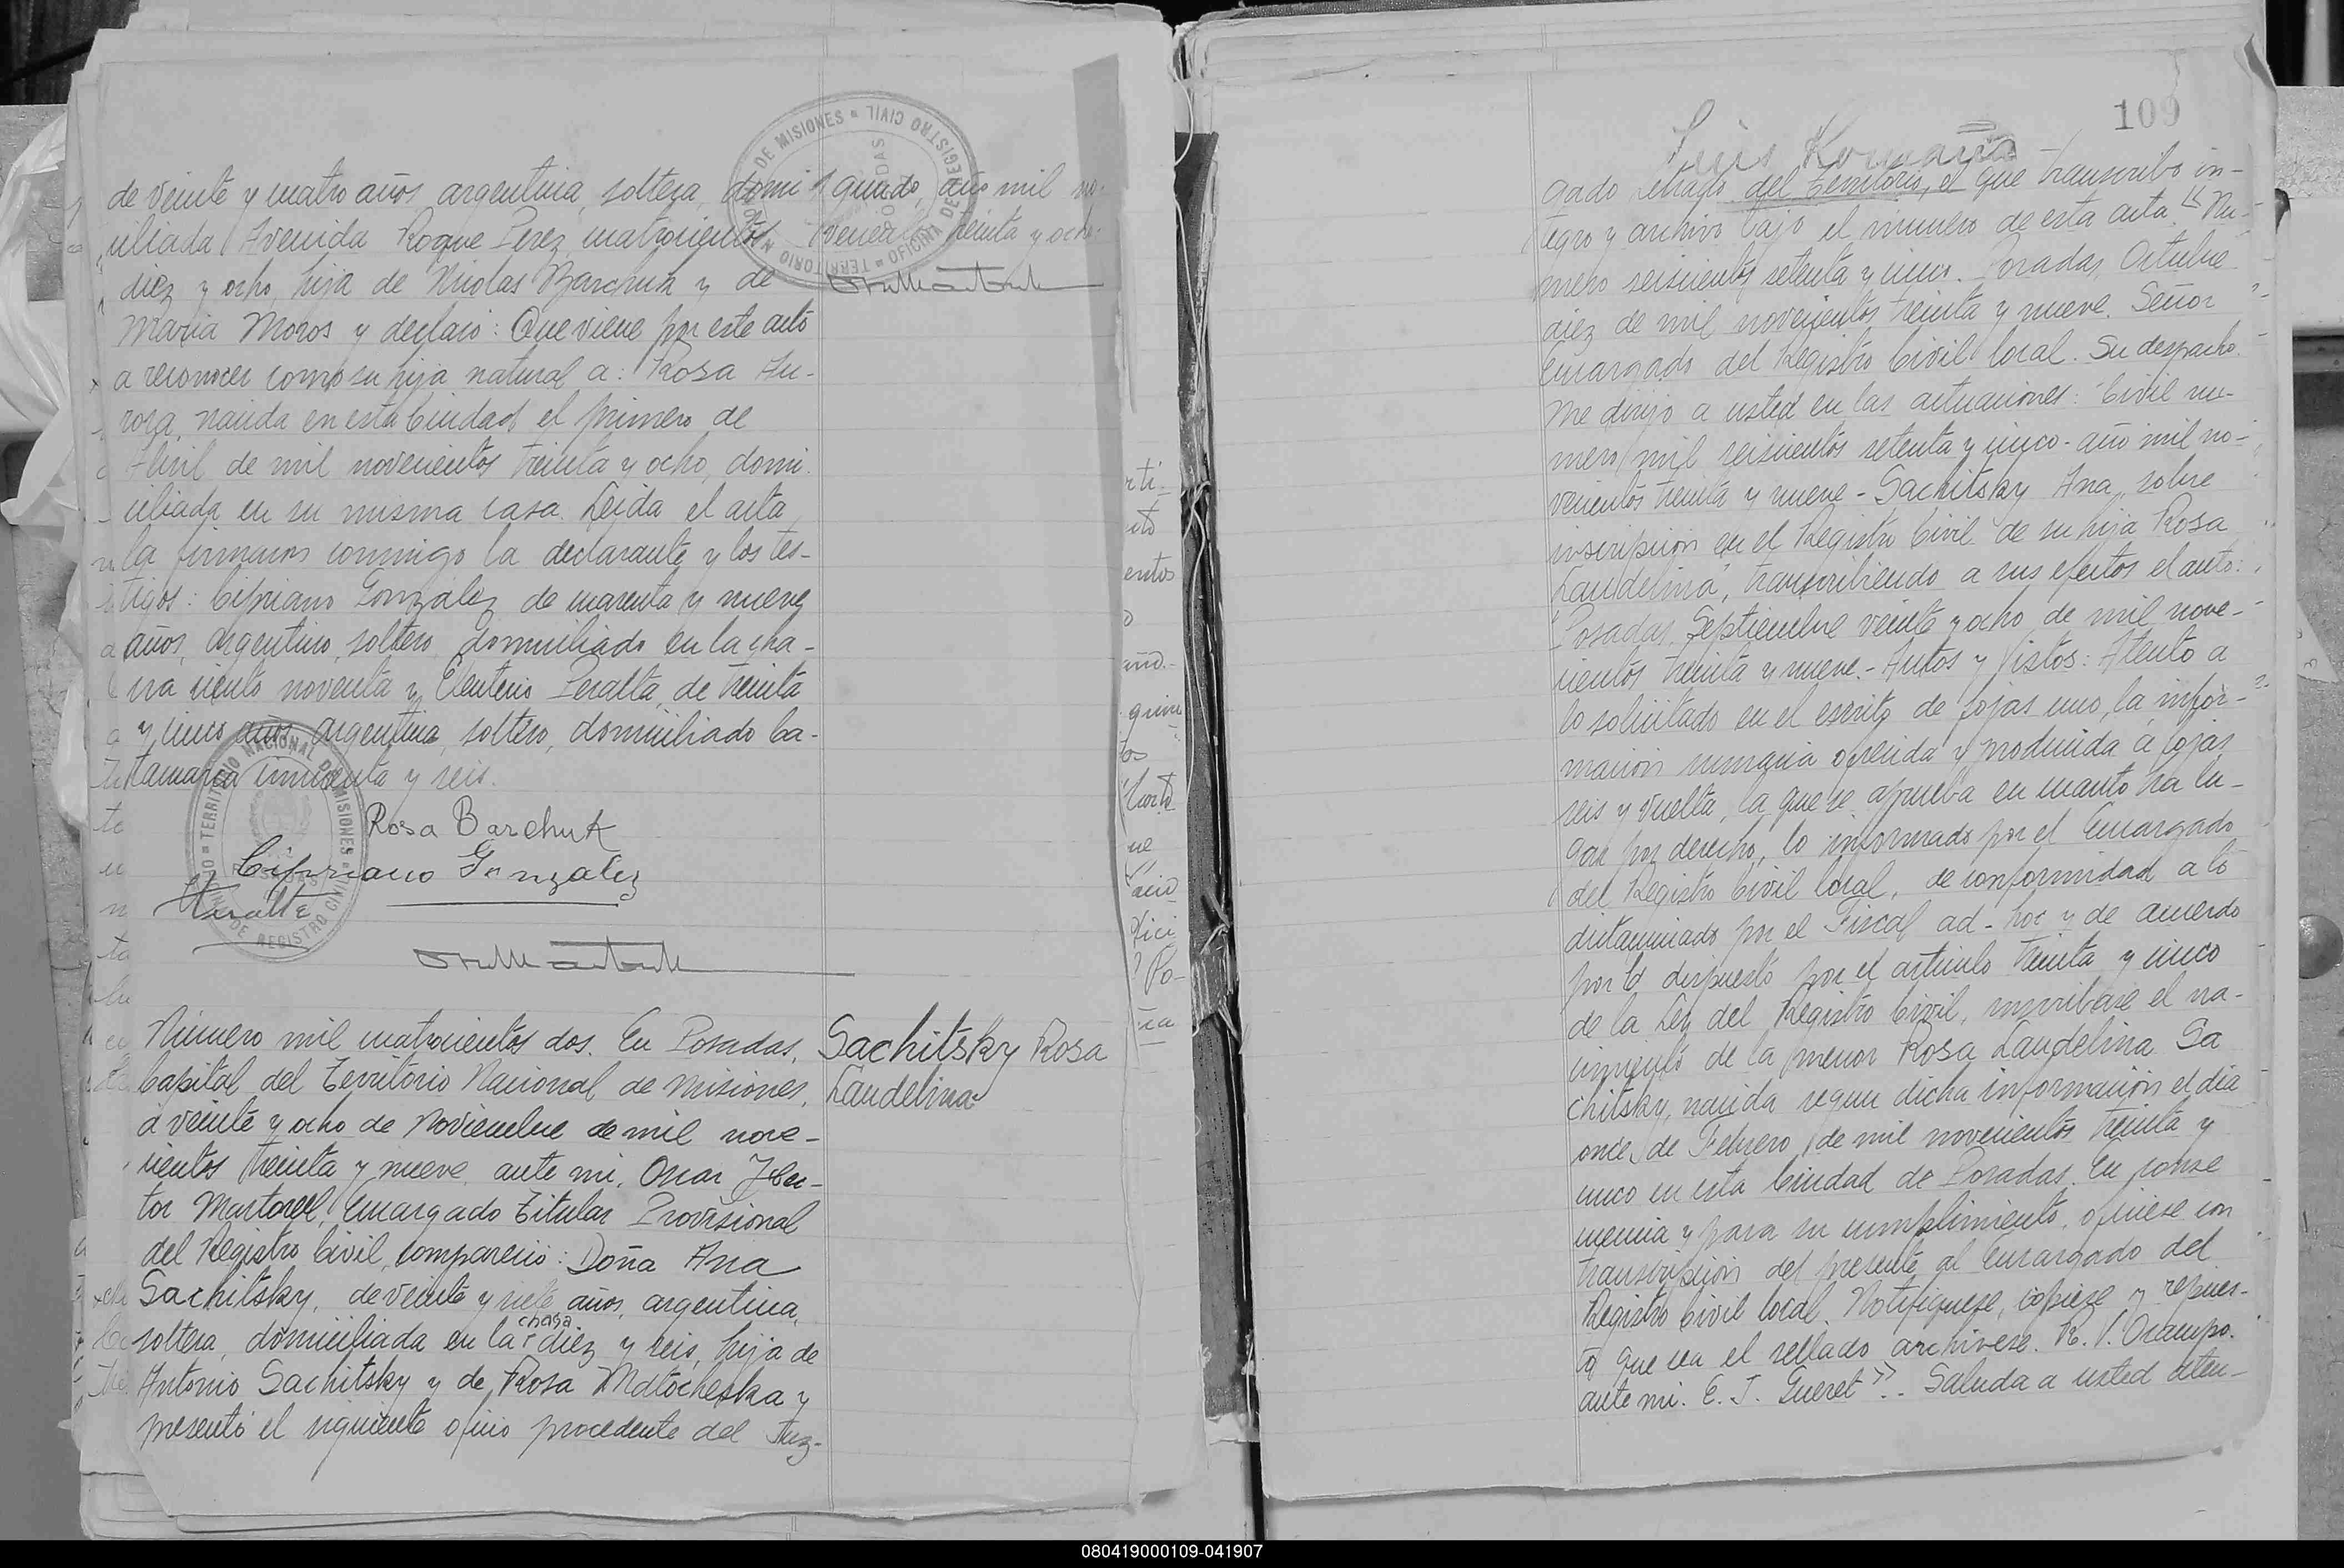 de veinte y cuatro años, argentina, soltera, domi
ciliada Avenida Roque Perez cuatrocientos
diez y ocho, hija de Nicolas Barchuk y de
Maria Moros y declaró: Que viene por este acto
a reconocer como su hija natural a: Rosa Au-
rora, nacida en esta Ciudad el primero de
Abril de mil novecientos treinta y ocho, domi
ciliada en su misma casa. Leida el acta
la firmaron conmigo la declarante y los tes-
tigos: Cipriano Gonzalez de cuarenta y nueve
años, argentino, soltero, domiciliado en la cha-
cra ciento noventa y Eleuterio Peralta, de treinta
y cinco años, argentino, soltero, domiciliado Ca-
tamarca cincuenta y seis.
Rosa Barchuk
Cipriano Gonzalez
Peralta
gundo, año mil no-
treinta y ocho.
TERRITORIO NACIONAL DE MISIONES
OFICINA DE REGISTRO CIVIL
POSADAS
Número mil cuatrocientos dos. En Posadas,
Capital del Territorio Nacional de Misiones,
a veinte y ocho de Noviembre de mil nove-
cientos treinta y nueve, ante mi, Oscar Hec-
tor Martorell, Encargado Titular Provisional
del Registro Civil, compareció: Doña Ana
Sachitsky, de veinte y siete años, argentina,
chara
soltera, domiciliada en la diez y seis, hija de
Antonio Sachitsky y de Rosa Matocheska y
presentó el siguiente oficio procedente del Juz-
Sachitsky Rosa
Laudelina
109
gado Letrado del Territorio, el que transcribo in-
tegro y archivo bajo el número de esta acta. "Nu-
mero seiscientos setenta y cinco. Posadas, Octubre
diez de mil novecientos treinta y nueve. Señor
Encargado del Registro Civil local. Su despacho.
Me dirijo a usted en las actuaciones: Civil nu-
mero mil seiscientos setenta y cinco - año mil no-
vecientos treinta y nueve - Sachitsky Ana, sobre
inscripción en el Registro Civil de su hija Rosa
Laudelina", transcribiendo a sus efectos el auto:
"Posadas, Septiembre veinte y ocho de mil nove-
cientos treinta y nueve.- Autos y Vistos: Atento a
lo solicitado en el escrito de fojas uno, la infor-
mación sumaria ofrecida y producida a fojas
seis y vuelta, la que se aprueba en cuanto ha lu-
gar por derecho, lo informado por el Encargado
del Registro Civil local, de conformidad a lo
dictaminado por el Fiscal ad-hoc y de acuerdo
por lo dispuesto por el articulo treinta y cinco
de la Ley del Registro Civil, inscribase el na-
cimiento de la menor Rosa Laudelina Sa
chitsky, nacida segun dicha información el dia
once de Febrero de mil novecientos treinta y
cinco en esta Ciudad de Posadas. En conse
cuencia y para su cumplimiento, ofíciese con
transcripción del presente al Encargado del
Registro Civil local. Notifiquese, copiese y repues-
to que sea el sellado archivese. R. V. Ocampo.
ante mi. E. J. Gueret".. Saluda a usted aten-
080419000109-041907